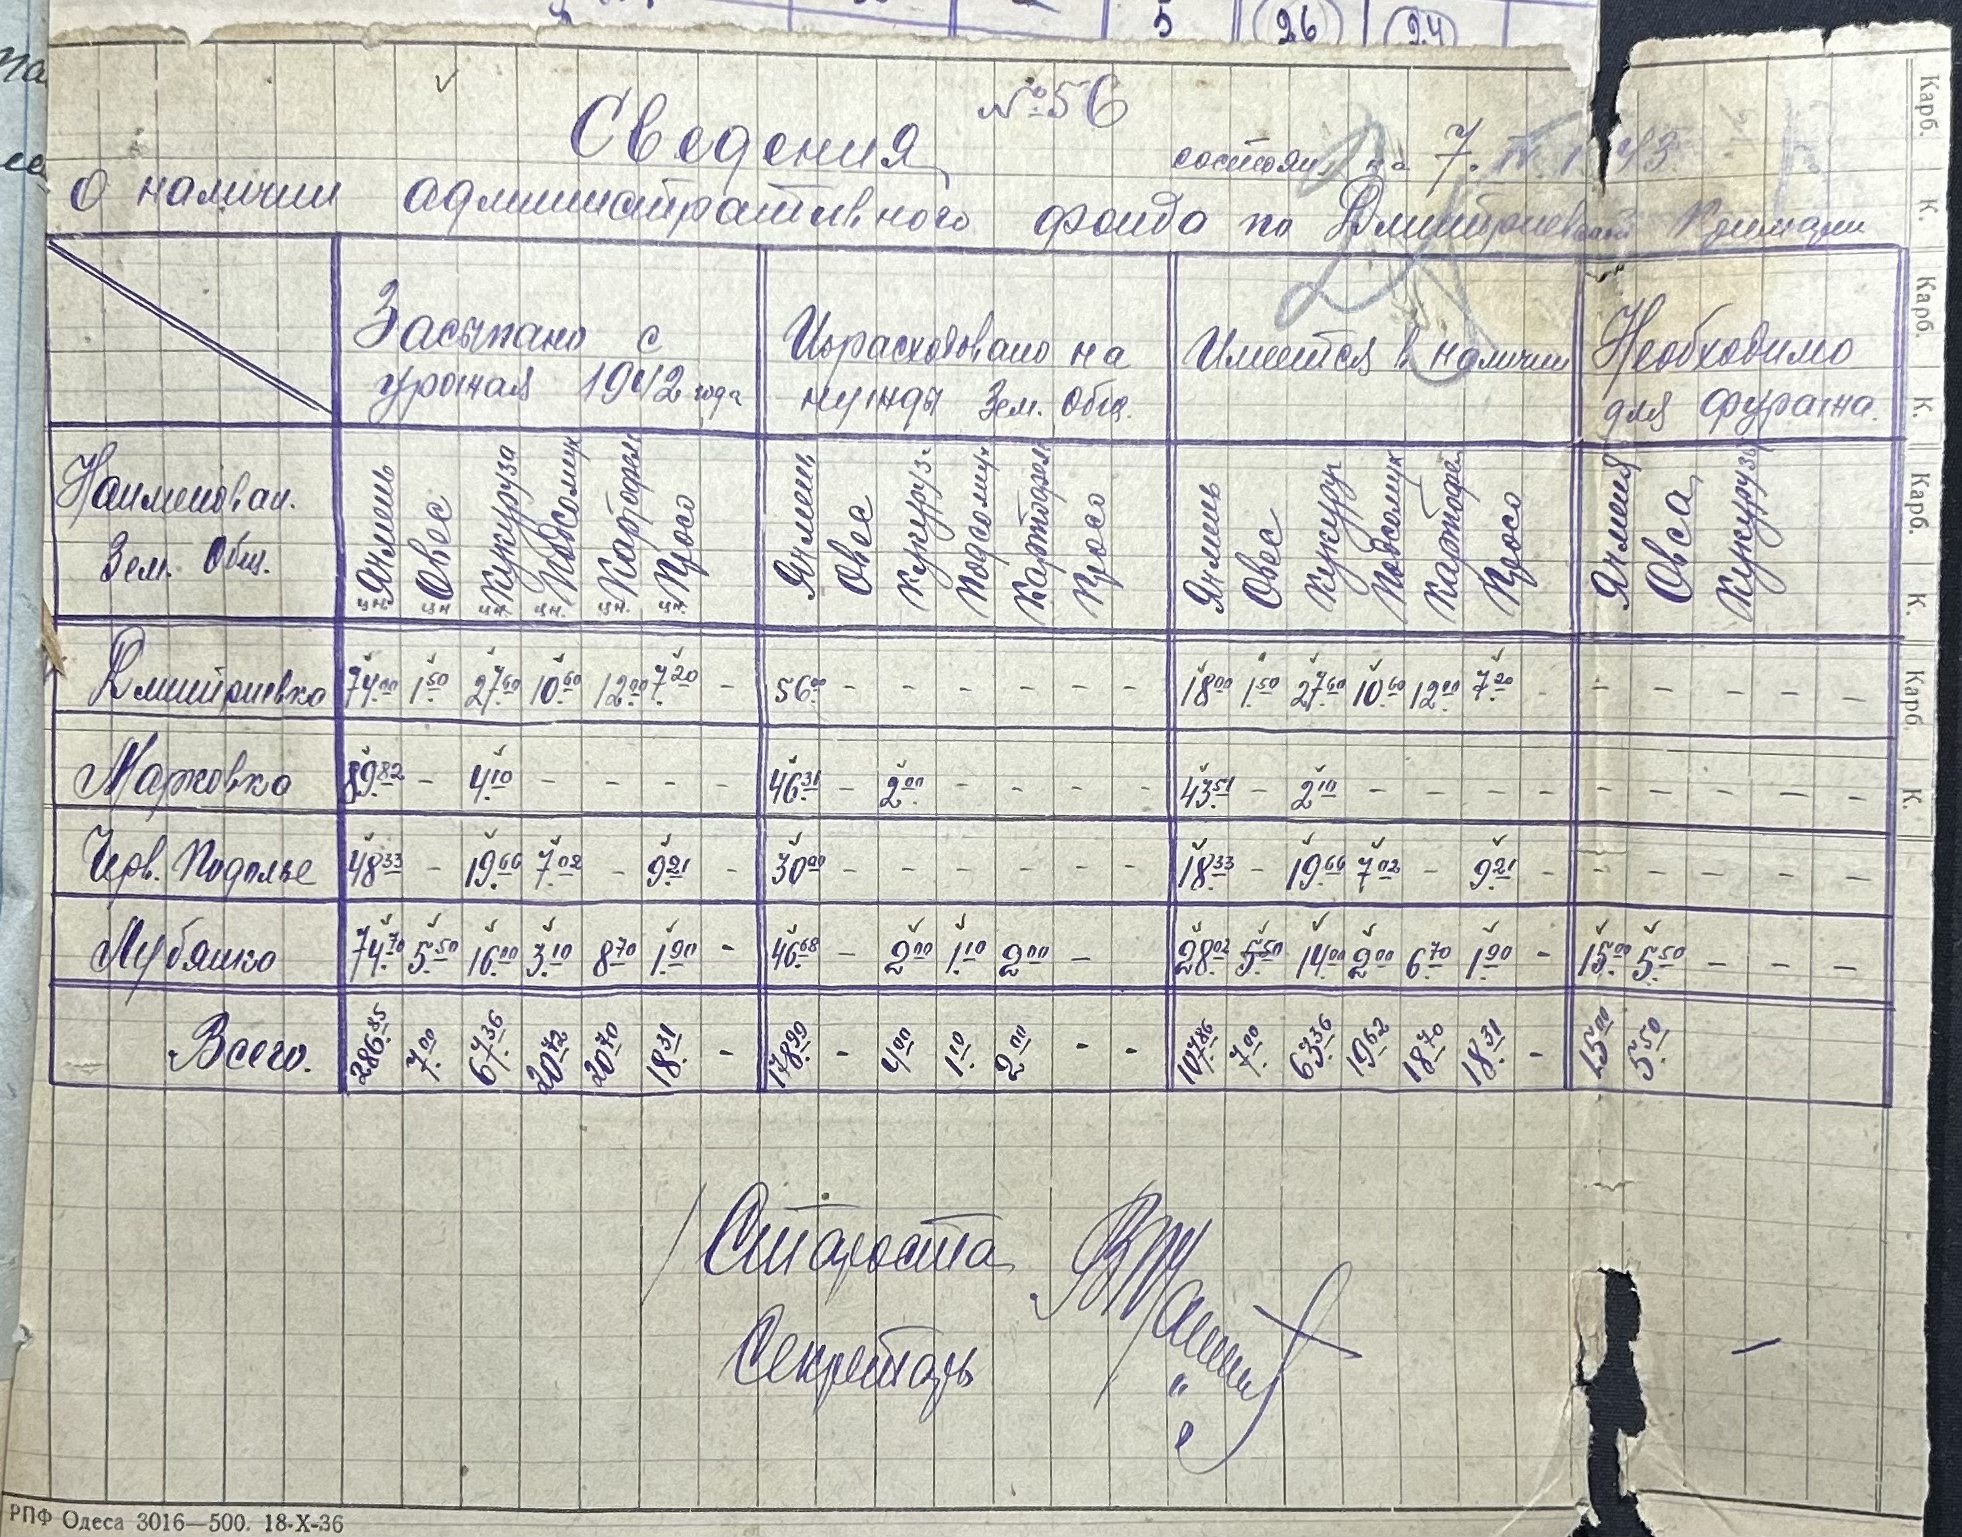 5 26 24
№ 56
Сведения
состоян. на 7. IV. 1943
о наличии административного фонда по Дмитриевской Примарии
Засыпано с урожая 1942 года | Израсходовано на нужды Зем. Общ. | Имеется в наличии | Необходимо для фуража.
Наименован. Зем. Общ. | Ячмень цн. | Овес цн | Кукуруза цн. | Подсолнух цн. | Картофель цн. | Просо цн. | Ячмень | Овес | Кукуруз. | Подсолнух | Картофель | Просо | Ячмень | Овес | Кукуруз | Подсолнух | Картофел | Просо | Ячменя | Овса | Кукурузы
Дмитриевка | 74.00 | 1.50 | 27.60 | 10.60 | 12.00 | 7.20 | - | 56.00 | - | - | - | - | - | - | 18.00 | 1.50 | 27.60 | 10.60 | 12.00 | 7.20 | - | - | - | - | - | -
Марковка | 89.82 | - | 4.10 | - | - | - | - | 46.31 | - | 2.00 | - | - | - | - | 43.51 | - | 2.10 | - | - | - | - | - | - | - | - | -
Черв. Подолье | 48.33 | - | 19.66 | 7.02 | - | 9.21 | - | 30.00 | - | - | - | - | - | - | 18.33 | - | 19.66 | 7.02 | - | 9.21 | - | - | - | - | - | -
Лубянко | 74.70 | 5.50 | 16.00 | 3.10 | 8.70 | 1.90 | - | 46.68 | - | 2.00 | 1.10 | 2.00 | - | 28.02 | 5.50 | 14.00 | 2.00 | 6.70 | 1.90 | - | 15.00 | 5.50 | - | - | -
Всего. | 286.85 | 7.00 | 67.36 | 20.72 | 20.70 | 18.31 | - | 178.99 | - | 4.00 | 1.10 | 2.00 | - | - | 107.86 | 7.00 | 63.36 | 19.62 | 18.70 | 18.31 | - | 15.00 | 5.50
Староста
Секретарь
РПФ Одеса 3016—500. 18-X-36
Карб. К. Карб. К. Карб. К. Карб. К.